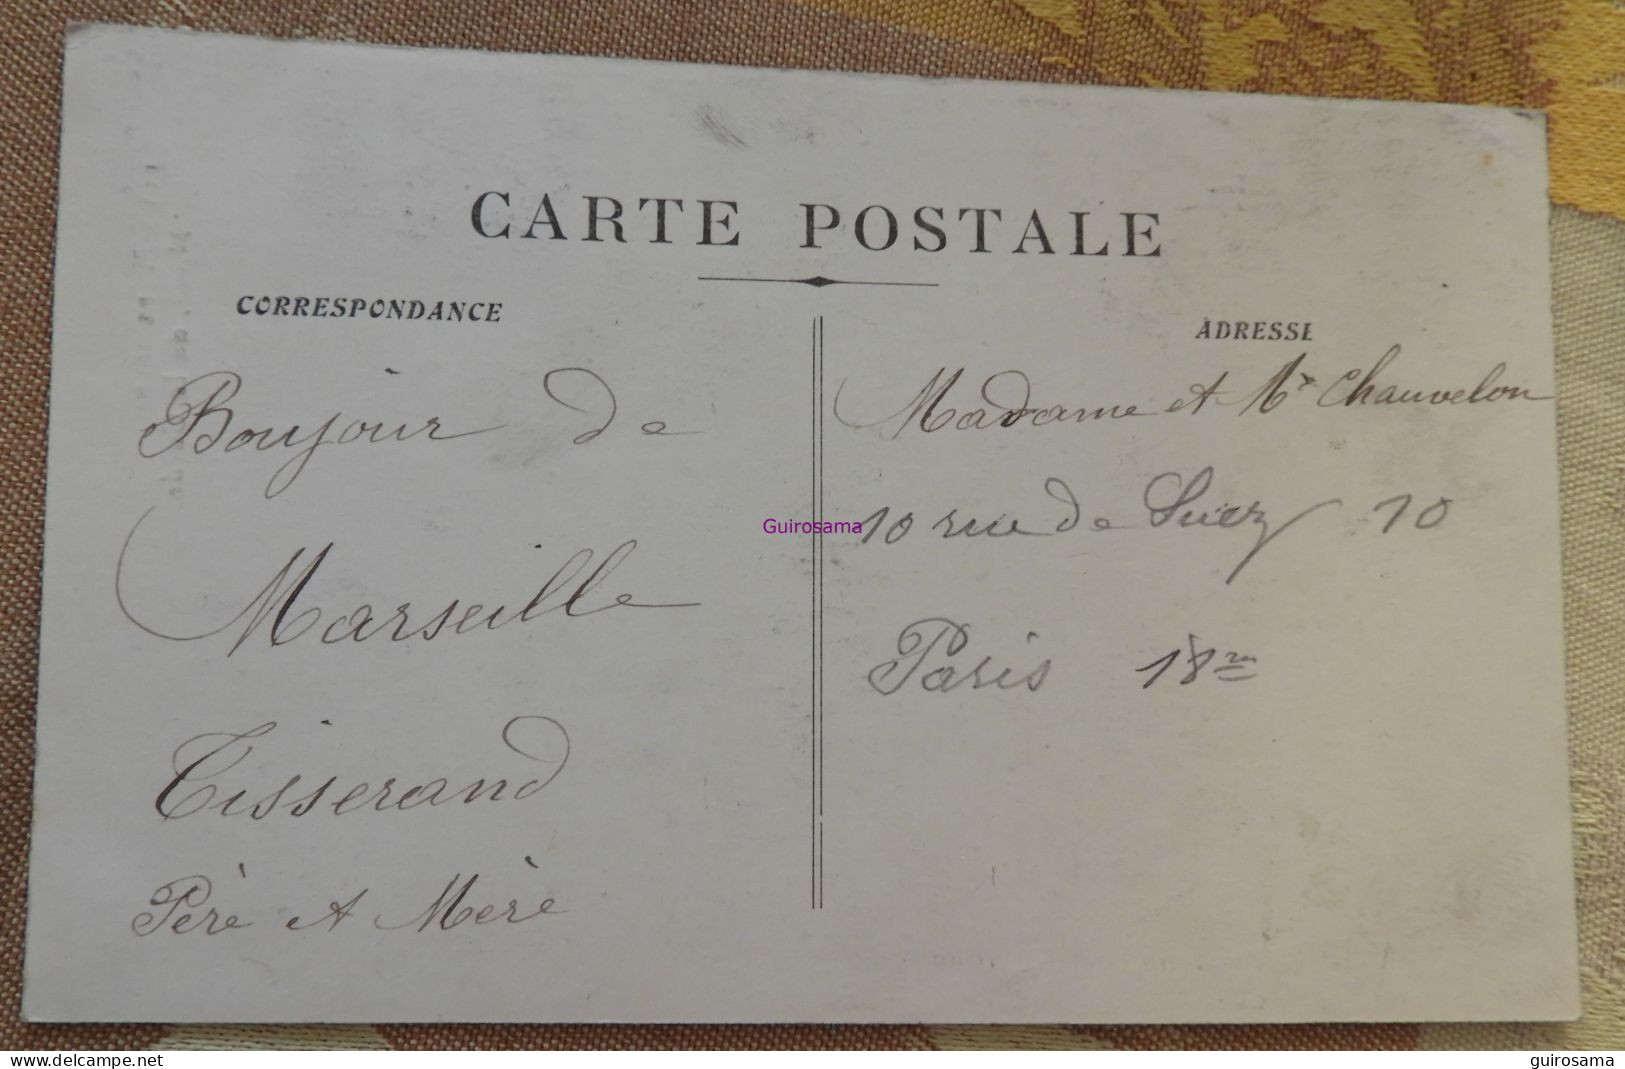 CARTE POSTALE
CORRESPONDANCE
Bonjour de
Marseille
Tisserand
Père et Mère
ADRESSE
Madame et Mr Chauvelon
10 rue de Suez 10
Paris 18me
Guirosama
delcampe.net
guirosama